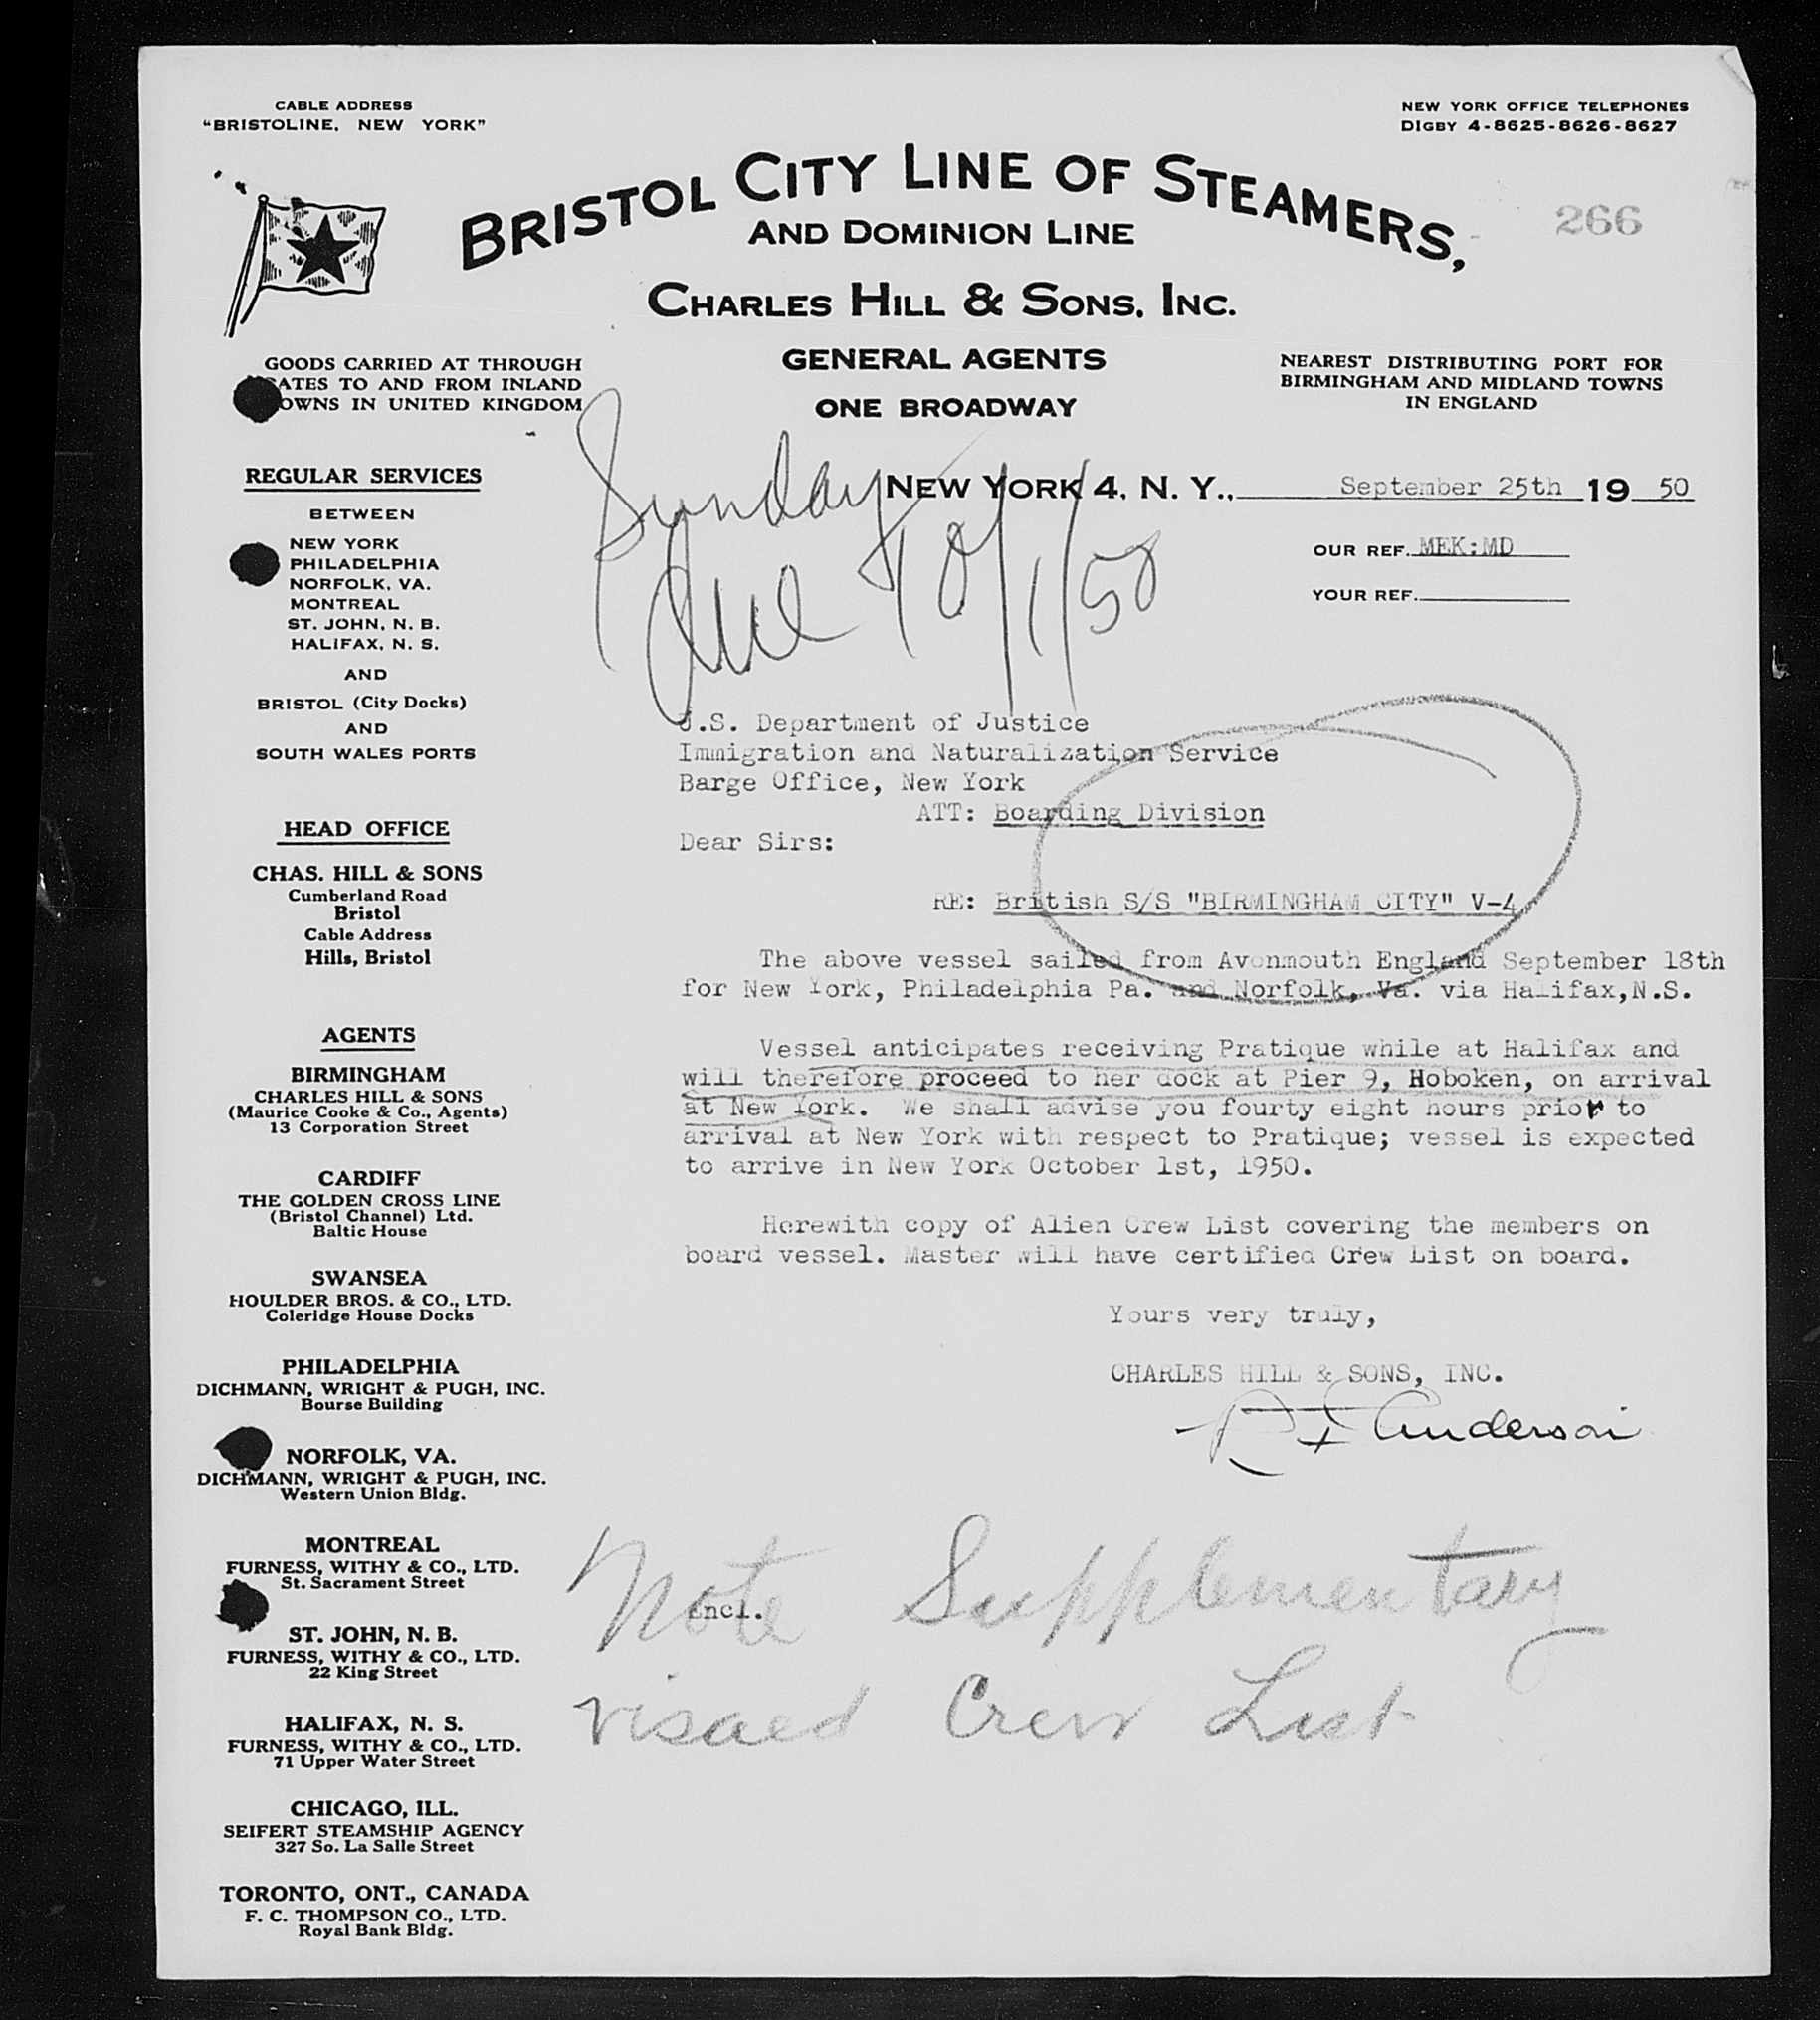 CABLE ADDRESS
"BRISTOLINE, NEW YORK"
NEW YORK OFFICE TELEPHONES
DIGBY 4-8625-8626-8627
BRISTOL CITY LINE OF STEAMERS,
266
AND DOMINION LINE
CHARLES HILL & SONS, INC.
GENERAL AGENTS
ONE BROADWAY
GOODS CARRIED AT THROUGH
RATES TO AND FROM INLAND
TOWNS IN UNITED KINGDOM
NEAREST DISTRIBUTING PORT FOR
BIRMINGHAM AND MIDLAND TOWNS
IN ENGLAND
NEW YORK 4, N. Y., September 25th 19 50
OUR REF. MEK:MD
YOUR REF.
Sunday
Due 10/1/50
REGULAR SERVICES
BETWEEN
NEW YORK
PHILADELPHIA
NORFOLK, VA.
MONTREAL
ST. JOHN, N. B.
HALIFAX, N. S.
AND
BRISTOL (City Docks)
AND
SOUTH WALES PORTS
HEAD OFFICE
CHAS. HILL & SONS
Cumberland Road
Bristol
Cable Address
Hills, Bristol
AGENTS
BIRMINGHAM
CHARLES HILL & SONS
(Maurice Cooke & Co., Agents)
13 Corporation Street
CARDIFF
THE GOLDEN CROSS LINE
(Bristol Channel) Ltd.
Baltic House
SWANSEA
HOULDER BROS. & CO., LTD.
Coleridge House Docks
PHILADELPHIA
DICHMANN, WRIGHT & PUGH, INC.
Bourse Building
NORFOLK, VA.
DICHMANN, WRIGHT & PUGH, INC.
Western Union Bldg.
MONTREAL
FURNESS, WITHY & CO., LTD.
St. Sacrament Street
ST. JOHN, N. B.
FURNESS, WITHY & CO., LTD.
22 King Street
HALIFAX, N. S.
FURNESS, WITHY & CO., LTD.
71 Upper Water Street
CHICAGO, ILL.
SEIFERT STEAMSHIP AGENCY
327 So. La Salle Street
TORONTO, ONT., CANADA
F. C. THOMPSON CO., LTD.
Royal Bank Bldg.
U.S. Department of Justice
Immigration and Naturalization Service
Barge Office, New York
ATT: Boarding Division
Dear Sirs:
RE: British S/S "BIRMINGHAM CITY" V-4
The above vessel sailed from Avonmouth England September 18th
for New York, Philadelphia Pa. and Norfolk, Va. via Halifax,N.S.
Vessel anticipates receiving Pratique while at Halifax and
will therefore proceed to her dock at Pier 9, Hoboken, on arrival
at New York. We shall advise you fourty eight hours prior to
arrival at New York with respect to Pratique; vessel is expected
to arrive in New York October 1st, 1950.
Herewith copy of Alien Crew List covering the members on
board vessel. Master will have certified Crew List on board.
Yours very truly,
CHARLES HILL & SONS, INC.
Anderson
Encl.
Note Supplementary
visaed Crew List